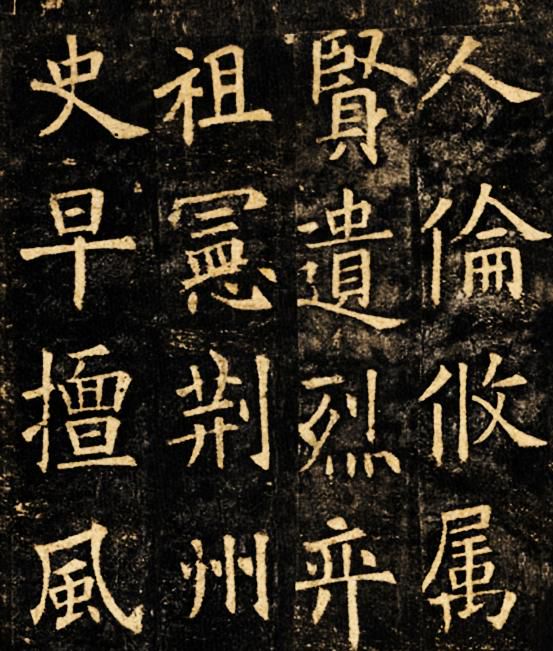 人倫攸属
賢遺烈弈
祖憲荆州
史早擅風